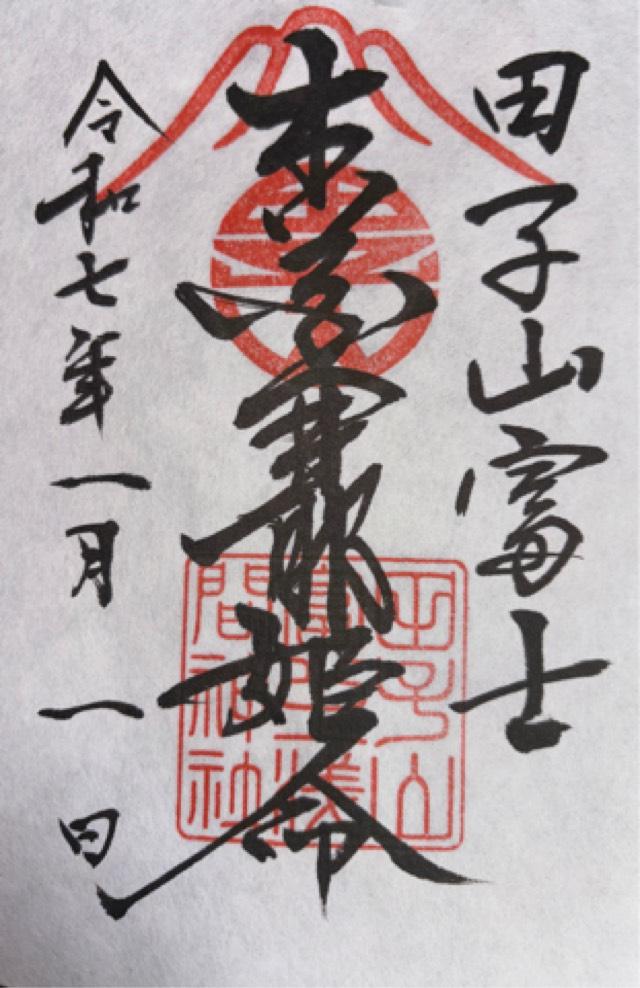 田子山富士
木花開耶姫命
令和七年一月一日
田子山
富士浅
間神社